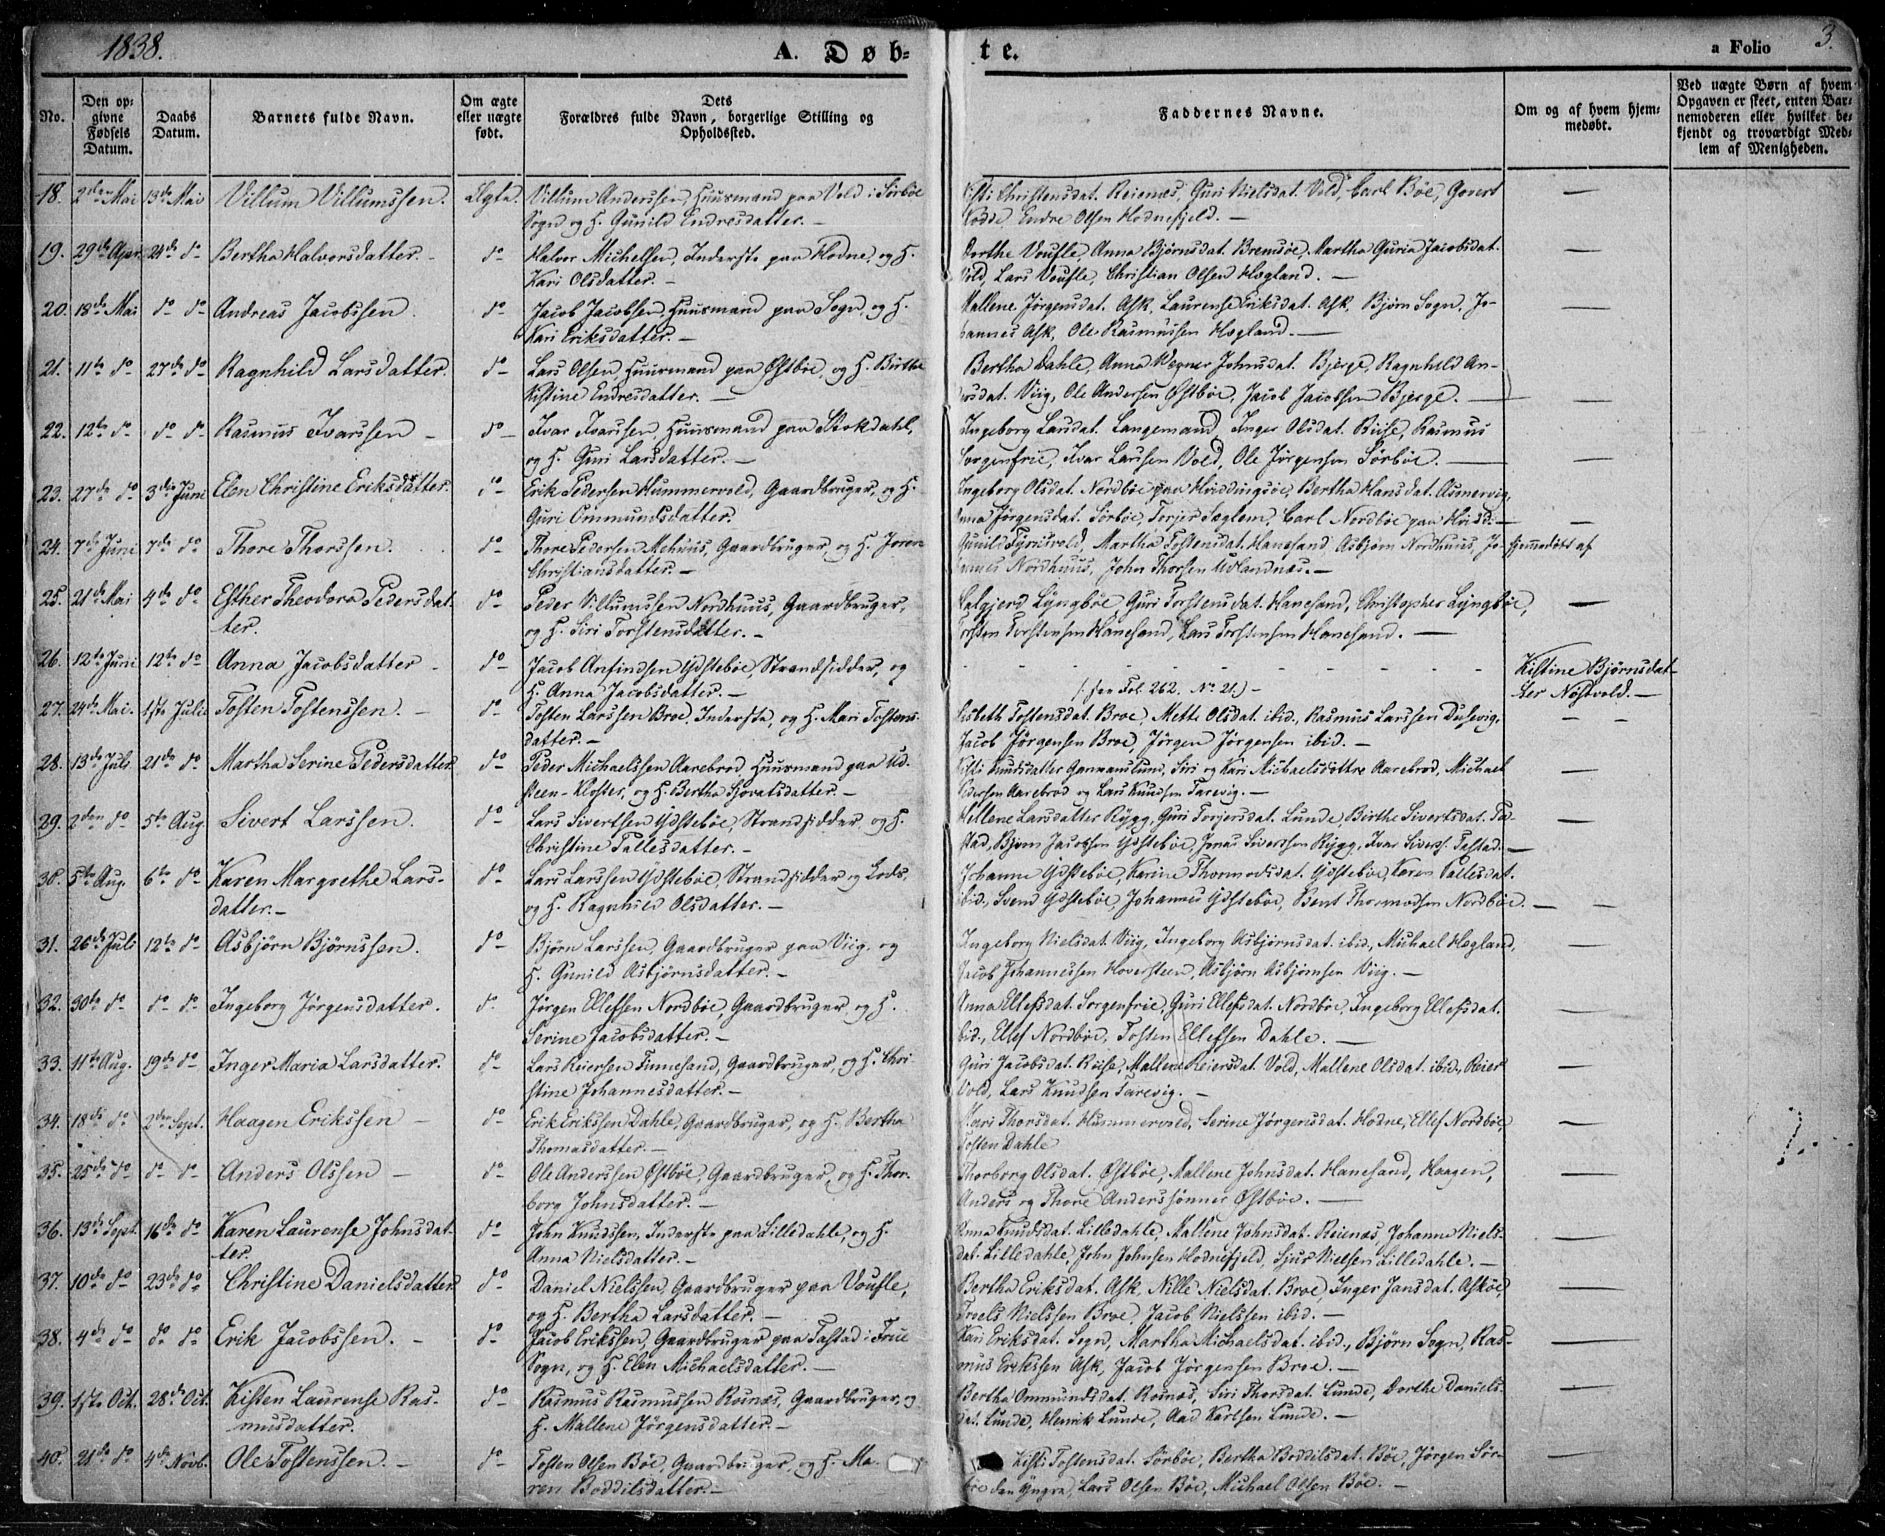 1838.
A. Døb-
te.
a Folio
3.
No.
Den op-
givne
Fødsels
Datum.
Daabs
Datum.
Barnets fulde Navn.
Om ægte
eller uægte
født.
Dets
Forældres fulde Navn, borgerlige Stilling og
Opholdssted.
Faddernes Navne.
Om og af hvem hjem-
medøbt.
Ved uægte Børn af hvem
Opgaven er skeet, enten Bar-
nemoderen eller hvilket be-
kjendt og troværdigt Med-
lem af Menigheden.
18. 2den Mai 13de Mai Villum Villumssen. Ægte. Villum Anderssen, Huusmand paa Vold i Sørbøe
Sogn og H. Gunild Endresdatter. —
Kisti Christensdat. Reienæs, Guri Nielsdat. Vold, Carl Bøe, Govert
Endre Olsen Hodnefjeld. —
19. 29de Apr. 24de do Bertha Halvorsdatter. do Halvor Michelsen, Inderste paa Hodne, og H.
Kari Olsdatter. —
Dorthe Voufle, Anna Bjørnsdat. Bremsøe, Martha Guria Jacobsdat.
Vold, Lars Voufle, Christian Olsen Hægland. —
20. 18de Mai do do Andreas Jacobssen. do Jacob Jacobsen, Huusmand paa Sogn, og H.
Kari Eriksdatter. —
Mallene Jørgensdat. Ask, Laurense Eriksdat. Ask, Bjørn Sogn, Jo-
hannes Ask, Ole Rasmussen Hægland. —
21. 11te do 27de do Ragnhild Larsdatter. do Lars Olsen, Huusmand paa Østbøe, og H. Birthe
Kistine Endresdatter. —
Bertha Dahle, Anna Regner Johnsdat. Bjerge, Ragnhild An-
dersdat. Viig, Ole Andersen Østbøe, Jacob Jacobsen Bjerge. —
22. 12te do do do Rasmus Ivarssen do Ivar Ivarssen, Huusmand paa Stokdahl,
og H. Guri Larsdatter. —
Ingeborg Larsdat. Langemand, Inger Olsdat. Riise, Rasmus
Sorgenfrie, Ivar Larssen Vold, Ole Jørgensen Sørbøe. —
23. 27de do 3die Juni Elen Christine Eriksdatter. do Erik Pedersen Hummervold, Gaardbruger, og H.
Guri Ommundsdatter.
Ingeborg Olsdat. Nordbøe paa Hviddingsøe, Bertha Hansdat. Asmervig,
Anna Jørgensdat. Sørbøe, Torjer Seglem, Carl Nordbøe paa Hvidd. —
24. 7de Juni 7de do Thore Thorssen. do Thore Pedersen Mehuus, Gaardbruger, og H. Joren
Christiansdatter. —
Gunild Fyrisvold, Martha Tostensdat. Hanesand, Asbjørn Nordhuus, Jo-
hannes Nordhuus, John Thorsen Udlandnæs. —
hjemmedøbt af
25. 21de Mai 4de do Esther Theodora Pedersdat-
ter.
do Peder Villumssen Nordhuus, Gaardbruger,
og H. Siri Torstensdatter. —
Valgjerd Lyngbøe, Guri Torstensdat. Hanesand, Christopher Lyngbøe,
Torsten Torstensen Hanesand, Lars Torstensen Hanesand. —
26. 12te Juni 12te do Anna Jacobsdatter do Jacob Anfindsen Ydstebøe, Strandsidder, og
H. Anna Jacobsdatter. —
(: see Fol. 262. No 21.) —
Kistine Bjørnsdat-
ter Nøstvold. —
27. 24de Mai. 1ste Julii Tosten Tostenssen. — do Tosten Larssen Broe, Inderste, og H. Mari Tostens-
datter. —
Lisbeth Tostensdat. Broe, Mette Olsdat. ibid., Rasmus Larssen Dusevig,
Jacob Jørgensen Broe, Jørgen Jørgensen ibid. —
28. 13de Juli 21de do Martha Serine Pedersdatter. do Peder Michaelssen Aarebrod, Huusmand paa Ud-
steen-Kloster, og H. Bertha Sjovatsdatter. —
Kisti Knudsdatter Garmanslund, Siri og Kari Michaelsdøttre Aarebrod, Michael
Pedersen Aarebrod og Lars Knudsen Tarevig. —
29. 2den do 5te Aug. Sivert Larssen. do Lars Sivertsen Ydstebøe, Strandsidder, og H.
Christine Pallesdatter. —
Mellene Larsdatter Rygg, Guri Torjersdat. Lunde, Birthe Sivertsdat. Ta-
stad, Bjørn Jacobsen Ydstebøe, Jonas Siverssen Rygg, Ivar Siverss. Tastad. —
30. 5te Aug. 6te do Karen Margrethe Lars-
datter. —
do Lars Larssen Ydstebøe, Strandsidder og Lods,
og H. Ragnhild Olsdatter. —
Johanne Ydstebøe, Karine Thormodsdat. Ydstebøe, Karen Pallesdat.
ibid., Svend Ydstebøe, Johannes Ydstebøe, Bent Thormodsen Nordbøe. —
31. 26de Juli 12te do Asbjørn Bjørnssen. do Bjørn Larssen, Gaardbruger paa Viig, og
H. Gunild Asbjørnsdatter. —
Ingeborg Nielsdat. Viig, Ingeborg Asbjørnsdat. ibid., Michael Hegland,
Jacob Johannessen Hoversteen, Asbjørn Asbjørnsen Viig. —
32. 30te do do do Ingeborg Jørgensdatter. do Jørgen Ellefsen Nordbøe, Gaardbruger, og H.
Serine Jacobsdatter. —
Anna Ellefsdat. Sorgenfrie, Guri Ellefsdat. Nordbøe, Ingeborg Ellefsdat.
ibid., Ellef Nordbøe, Tosten Ellefsen Dahle. —
33. 11te Aug. 19de do Inger Maria Larsdatter. do Lars Reiersen Finnesand, Gaardbruger, og H. Chri-
stine Johannesdatter. —
Guri Jacobsdat. Riise, Mallene Reiersdat. Vold, Mallene Olsdat. ibid., Reier
Vold, Lars Knudsen Tarevig. —
34. 18de do 2den Sept. Haagen Erikssen — do Erik Erikssen Dahle, Gaardbruger, og H. Bertha
Thomasdatter. —
Kari Thorsdat. Hummervold, Serine Jørgensdat. Hodne, Ellef Nordbøe,
Tosten Dahle
35. 25de do do do Anders Olssen — do Ole Anderssen Østbøe, Gaardbruger, og H. Thor-
borg Johnsdatter. —
Thorborg Olsdat. Østbøe, Mallene Johnsdat. Hanesand, Haagen,
Anders og Thore Anderssønner Østbøe. —
36. 13de Sept. 16de do Karen Laurense Johnsdat-
ter.
do John Knudssen, Inderste paa Lilledahle, og H.
Anna Nielsdatter. —
Anna Knudsdat. Lilledahle, Mallene Johnsdat. Reienæs, Johanne Niels-
dat. Lilledahle, John Johnsen Hodnefjeld, Sjur Nielsen Lilledahle. —
37. 10de do 23de do Christine Danielsdatter do Daniel Nielssen, Gaardbruger paa Voufle,
og H. Bertha Larsdatter. —
Bertha Eriksdat. Ask, Nille Nielsdat. Broe, Inger Jansdat. Askøe,
Troels Nielssen Broe, Jacob Nielssen ibid. —
38. 4de do do do Erik Jacobssen. — do Jacob Erikssen, Gaardbruger paa Tastad i Frue
Sogn, og H. Elen Michaelsdatter. —
Kari Eriksdat. Sogn, Martha Michaelsdat. ibid., Bjørn Sogn, Ras-
mus Erikssen Ask, Jacob Jørgensen Broe. —
39. 1ste Oct. 28de Oct. Kisten Laurense Ras-
musdatter.
do Rasmus Rasmussen Roinæs, Gaardbruger, og
H. Mallene Jørgensdatter. —
Bertha Ommundsdat. Roinæs, Siri Thorsdat. Lunde, Dorthe Daniels-
dat. Lunde, Henrik Lunde, Aad Karlsen Lunde. —
40. 21de do 4de Novb. Ole Tostenssen. — do Tosten Olsen Bøe, Gaardbruger, og H. Ma-
ren Boddilsdatter. —
Kisti Tostensdat. Sørbøe, Bertha Boddilsdat. Bøe, Jørgen Sør-
bøe den Yngre, Lars Olsen Bøe, Michael Olsen Bøe. —